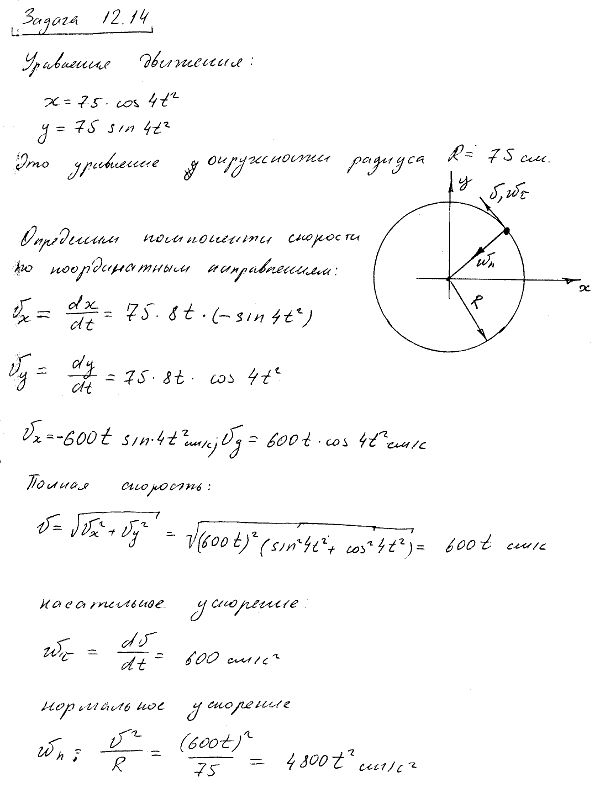 Задача 12.14
Уравнение движения:
x = 75 · cos 4t²
y = 75 sin 4t²
Это уравнение окружности радиуса R = 75 см.
y
v, wτ
wn
x
R
Определим компоненты скорости
по координатным направлениям:
vx = dx/dt = 75 · 8t · (−sin 4t²)
vy = dy/dt = 75 · 8t · cos 4t²
vx = −600t sin·4t² см/с; vy = 600t · cos 4t² см/с
Полная скорость:
v = √(vx² + vy²) = √((600t)² (sin²4t² + cos²4t²)) = 600t см/с
касательное ускорение:
wτ = dv/dt = 600 см/с²
нормальное ускорение
wn = v²/R = (600t)²/75 = 4800t² см/с²